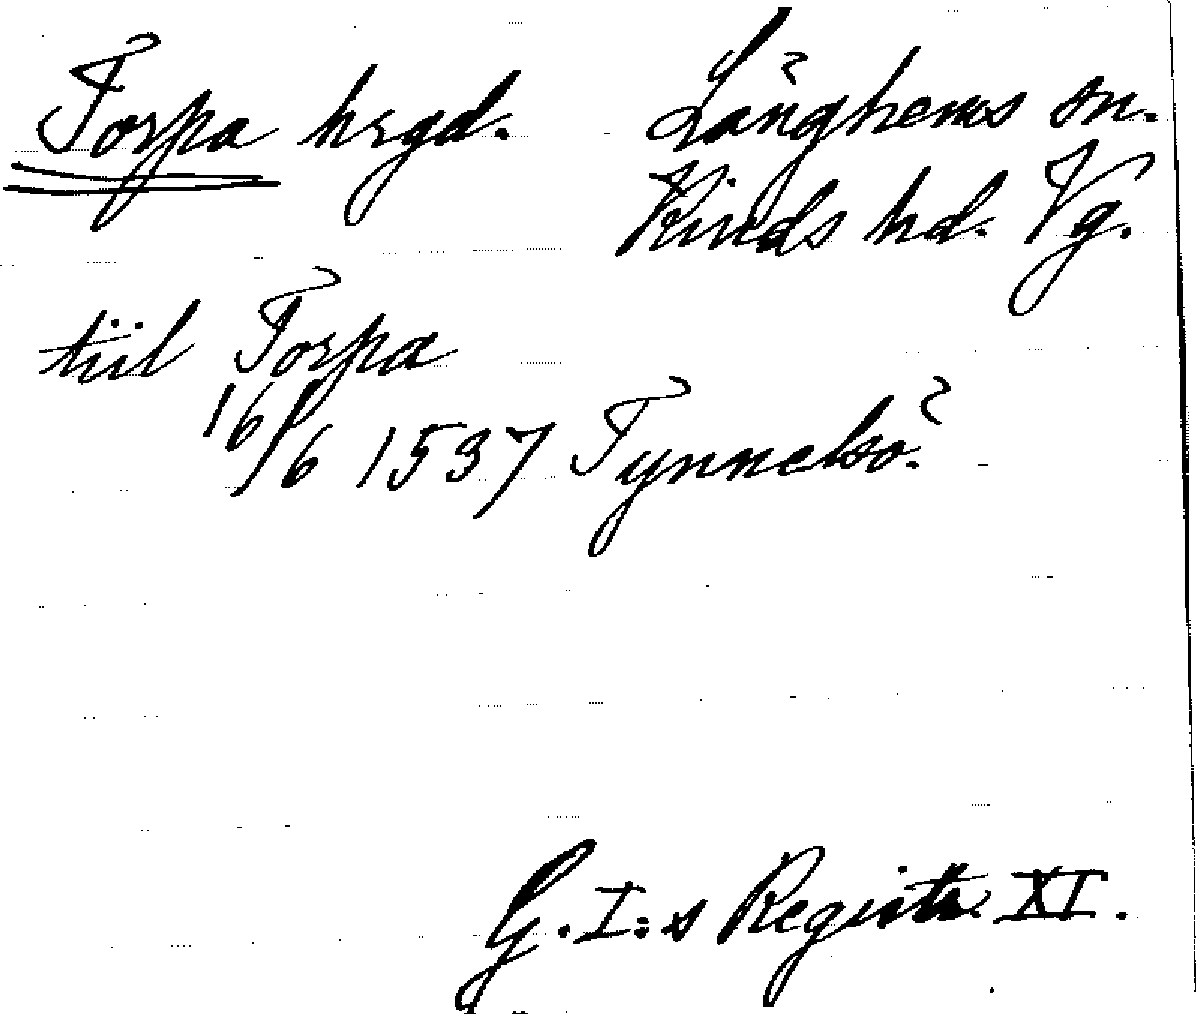 Torpa hrgd. Långhems sn.
Kinds hd. Vg.
tiil Torpa
16/6 1537 Tynnelsö.
G. I:s Registr. XI.